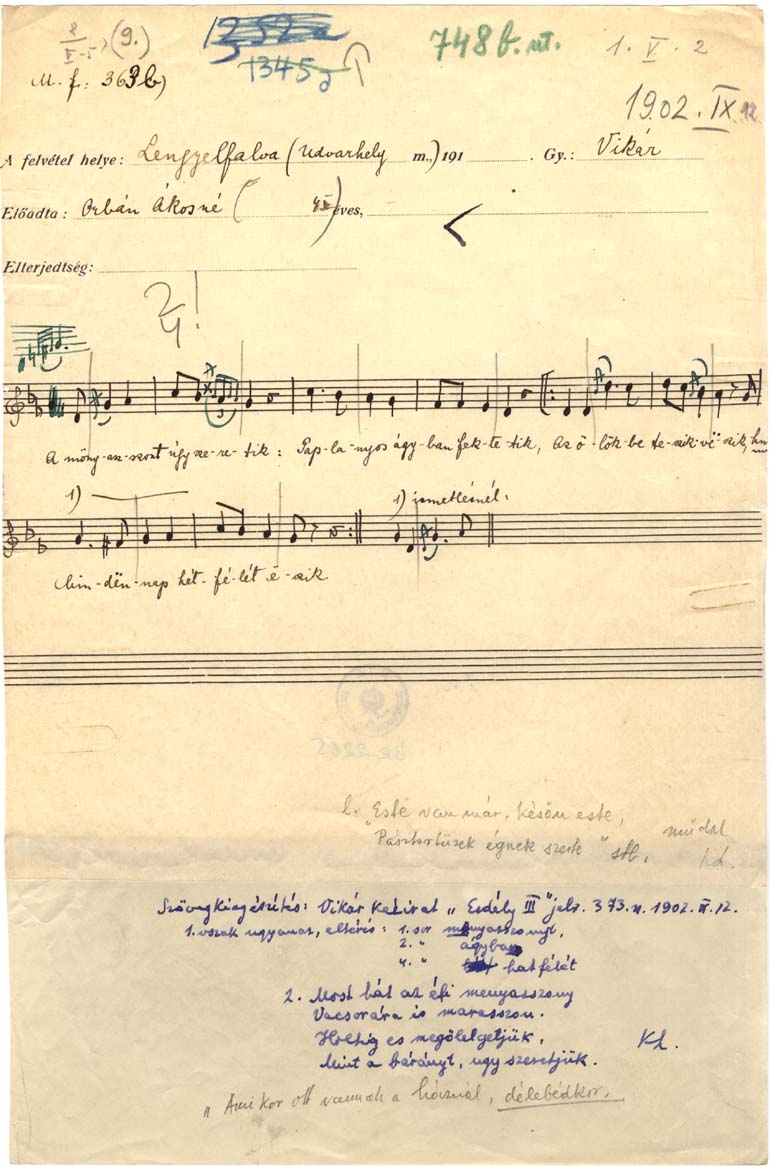 8/V-5 (9.)
1252a
1345j
748b. ut.
1. V. 2
M. f: 363b)
1902. IX. 12
A felvétel helye: Lengyelfalva (Udvarhely m.,) 191 . Gy.: Vikár
Előadta: Orbán Ákosné ( 45 éves,
Elterjedtség:
2/4!
A möny-asz-szont úgy sze-re-tik: Pap-la-nyos ágy-ban fek-te-tik, Az ö-lök-be te-szik-vë-szik, hm
1) 1) ismétlésnél:
Min-dën-nap hét-fé-lét ë-szik.
l. "Este van már, későn este,
Pásztortüzek égnek szerte" stb. műdal
Szövegkiegészítés: Vikár kézirat "Erdély III" jelz. 373.sz. 1902. IX. 12.
1. vszak ugyanaz, eltérés: 1. sor menyasszonyt,
2. " ágyban
4. " hatfélét
2. Most hát az éfi menyasszony
Vacsorára is marasszon.
Holtig es megölelgetjük,
Mint a bárányt, ugy szeretjük.
"Amikor ott vannak a háznál, délebédkor.